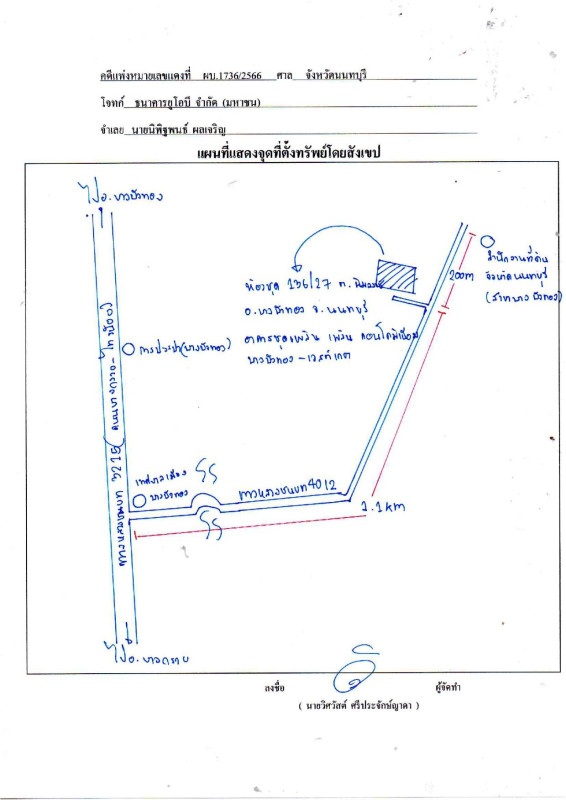 คดีแพ่งหมายเลขแดงที่ ผบ.1736/2566 ศาล จังหวัดนนทบุรี
โจทก์ ธนาคารยูโอบี จำกัด (มหาชน)
จำเลย นายนิพิฐพนธ์ ผลเจริญ
แผนที่แสดงจุดที่ตั้งทรัพย์โดยสังเขป
ไป อ.บางบัวทอง
สำนักงานที่ดิน
จังหวัดนนทบุรี
(สาขาบางบัวทอง)
200m
ห้องชุด 136/27 ต.
อ.บางบัวทอง จ.นนทบุรี
อาคารชุดเพลิน เพลิน คอนโดมิเนียม
บางบัวทอง - เวสต์เกต
การประปา(บางบัวทอง)
ทางหลวงชนบท 3215 (ถนนบางกรวย - ไทรน้อย)
เทศบาลเมือง
บางบัวทอง
ทางหลวงชนบท 4012
1.1km
ไป อ.บางกรวย
ลงชื่อ ผู้จัดทำ
( นายวิศวัสต์ ศรีประจักษ์ญาดา )